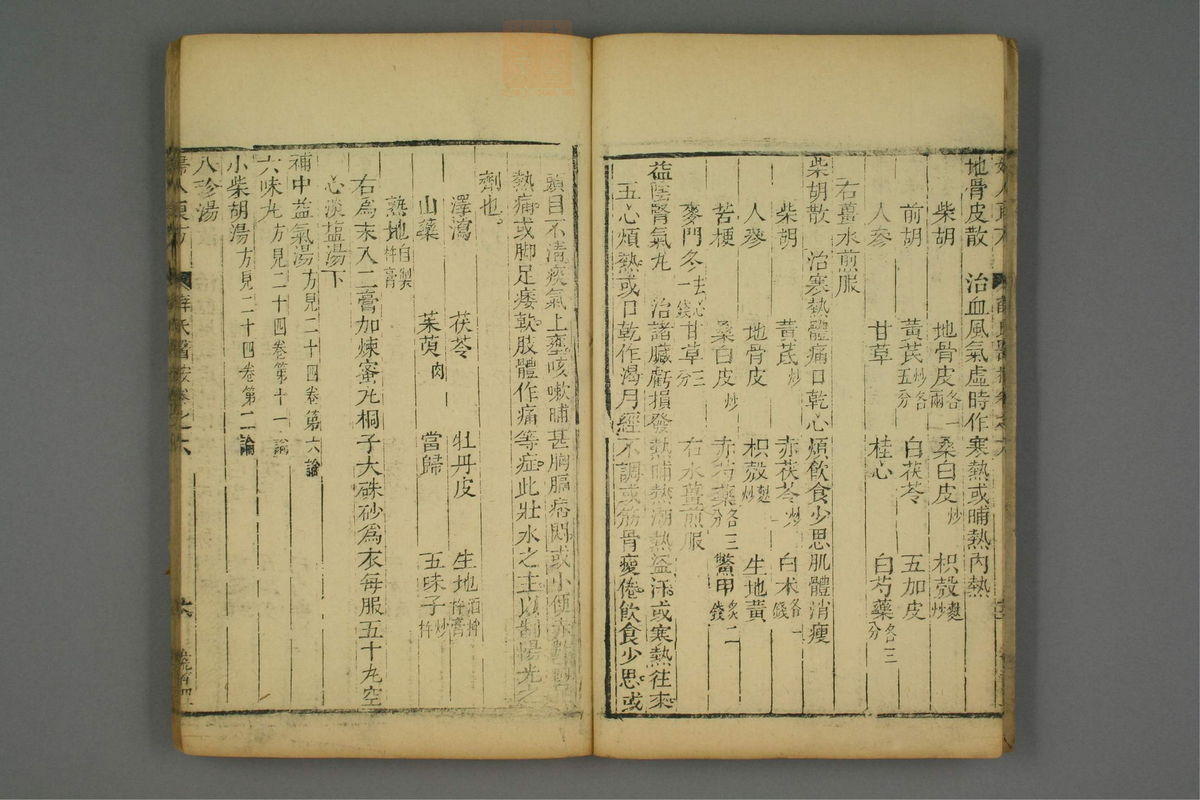 地骨皮散 治血風氣虛時作寒熱或晡熱內熱
柴胡 地骨皮各一兩 桑白皮炒 枳殼麩炒
前胡 黃芪炒各五分 白茯苓 五加皮
人參 甘草 桂心 白芍藥各三分
右薑水煎服
柴胡散 治寒熱體痛口乾心煩飲食少思肌體消瘦
柴胡 黃芪炒 赤茯苓炒 白朮各一錢
人參 地骨皮 枳殼麩炒 生地黃
苦梗 桑白皮炒 赤芍藥各三分 鱉甲炙二錢
麥門冬去心一錢 甘草三分 右水薑煎服
益陰腎氣丸 治諸臟虧損發熱晡熱潮熱盜汗或寒熱往來
五心煩熱或口乾作渴月經不調或筋骨痠倦飲食少思或
頭目不清痰氣上壅咳嗽晡甚胸膈痞悶或小便赤
熱痛或脚足痿軟肢體作痛等症此壯水之主以制陽光之
劑也
澤瀉 茯苓 牡丹皮 生地酒拌杵膏
山藥 茱萸肉 當歸 五味子炒杵
熟地自製杵膏
右為末入二膏加煉蜜丸桐子大硃砂為衣每服五十丸空
心淡鹽湯下
補中益氣湯方見二十四卷第六論
六味丸方見二十四卷第十一論
小柴胡湯方見二十四卷第二論
八珍湯
婦人良方 薛氏醫按卷之六